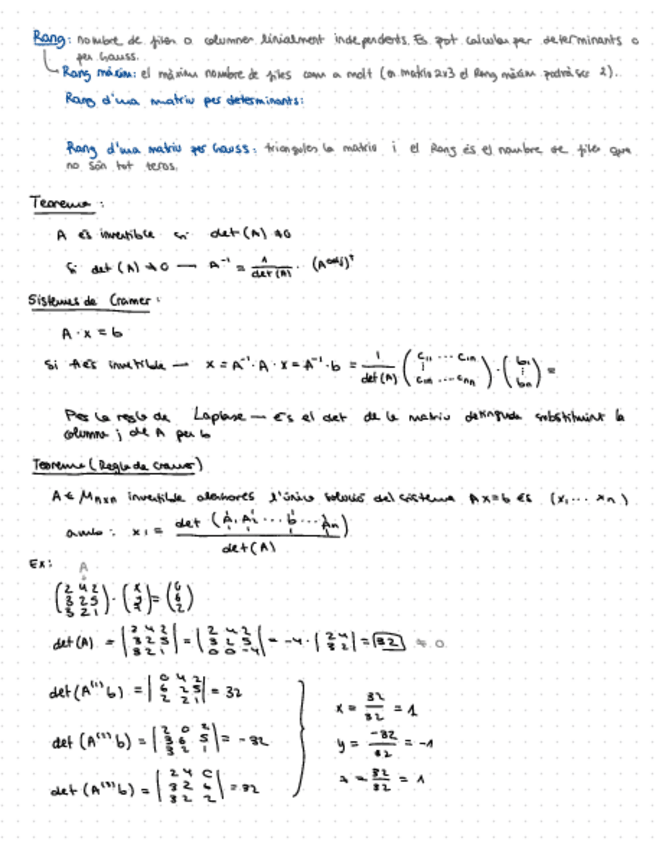 Rang: nombre de files o columnes linialment independents. Es pot calcular per determinants o
per Gauss.
Rang màxim: el màxim nombre de files com a molt (en matriu 2x3 el Rang màxim podrà ser 2).
Rang d'una matriu per determinants:
Rang d'una matriu per Gauss: triangules la matriu i el Rang és el nombre de files que
no són tot zeros.
Teorema:
A és invertible si det(A) ≠ 0
Si det(A) ≠ 0 — A⁻¹ = 1/det(A) · (A^adj)^t
Sistemes de Cramer:
A · x = b
Si A és invertible — x = A⁻¹ · A · x = A⁻¹ · b = 1/det(A) (c₁₁ ··· c₁n ⋮ c₁n ··· cnn) · (b₁ ⋮ bn) =
Per la regla de Laplase — és el det de la matriu substituint la
columna j de A per b
Teorema (Regla de cramer)
A ∈ Mnxn invertible aleshores l'única solució del sistema Ax=b és (x₁ ··· xn)
amb: xi = det (A₁ A₂ ··· b ··· An) / det(A)
Ex: A
(2 4 2 / 3 2 5 / 3 2 1) · (x / y / z) = (0 / 6 / 2)
det(A) = |2 4 2 / 3 2 5 / 3 2 1| = |2 4 2 / 3 2 5 / 0 0 -4| = -4 · |2 4 / 3 2| = 32 ≠ 0
det(A⁽¹⁾b) = |0 4 2 / 6 2 5 / 2 2 1| = 32
x = 32/32 = 1
det(A⁽²⁾b) = |2 0 2 / 3 6 5 / 3 2 1| = -32
y = -32/32 = -1
det(A⁽³⁾b) = |2 4 0 / 3 2 6 / 3 2 2| = 32
z = 32/32 = 1